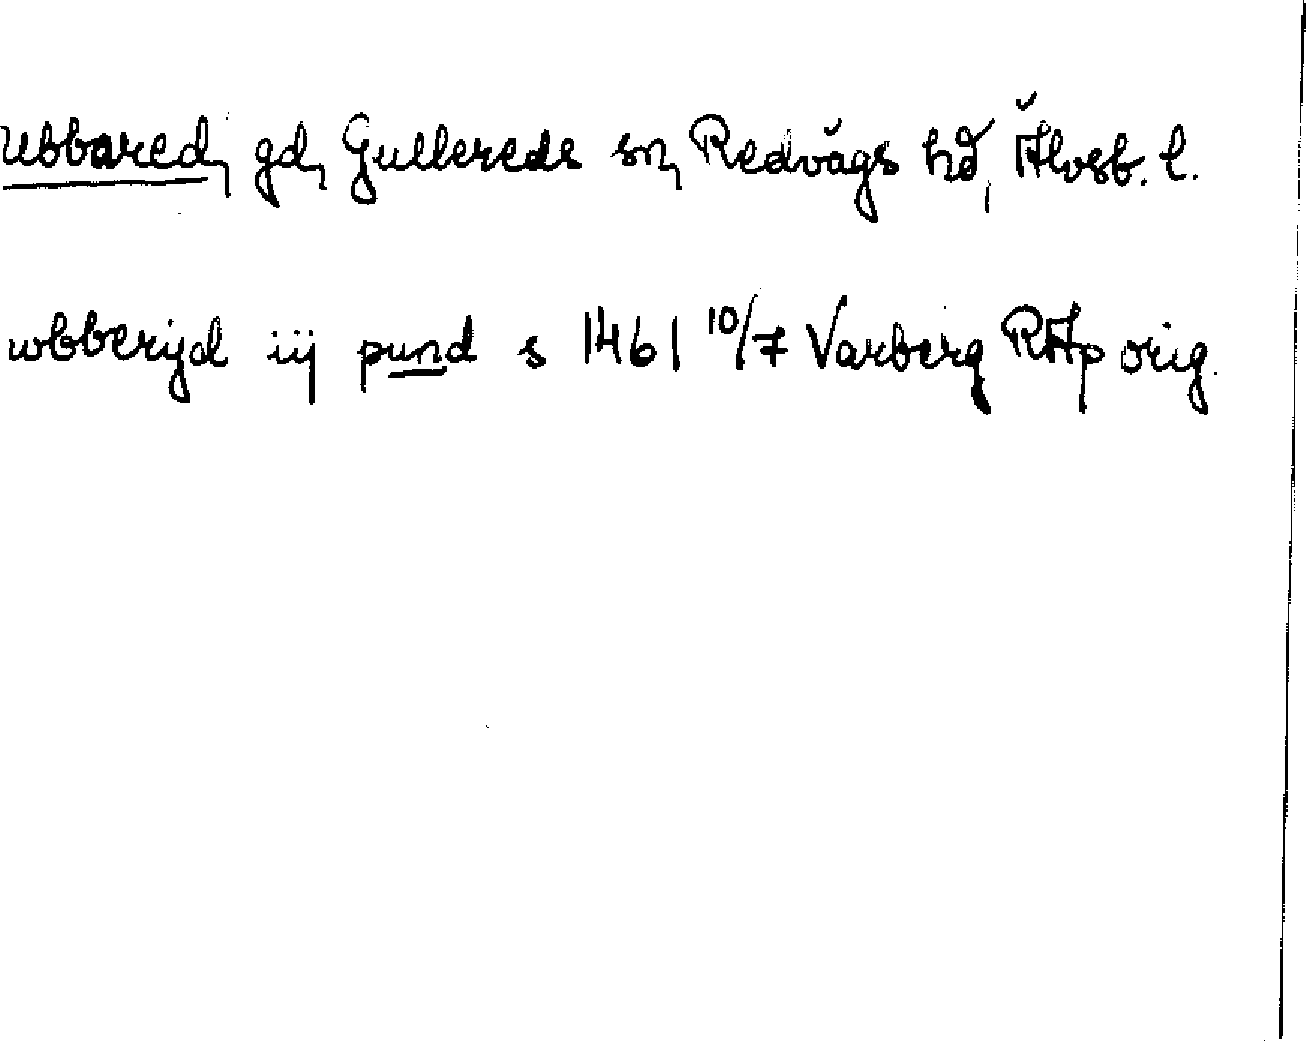 Ubbared, gd, Gullereds sn, Redvägs hd, Älvsb. l.
wbberijd iij pund s 1461 10/7 Varberg RAp orig.